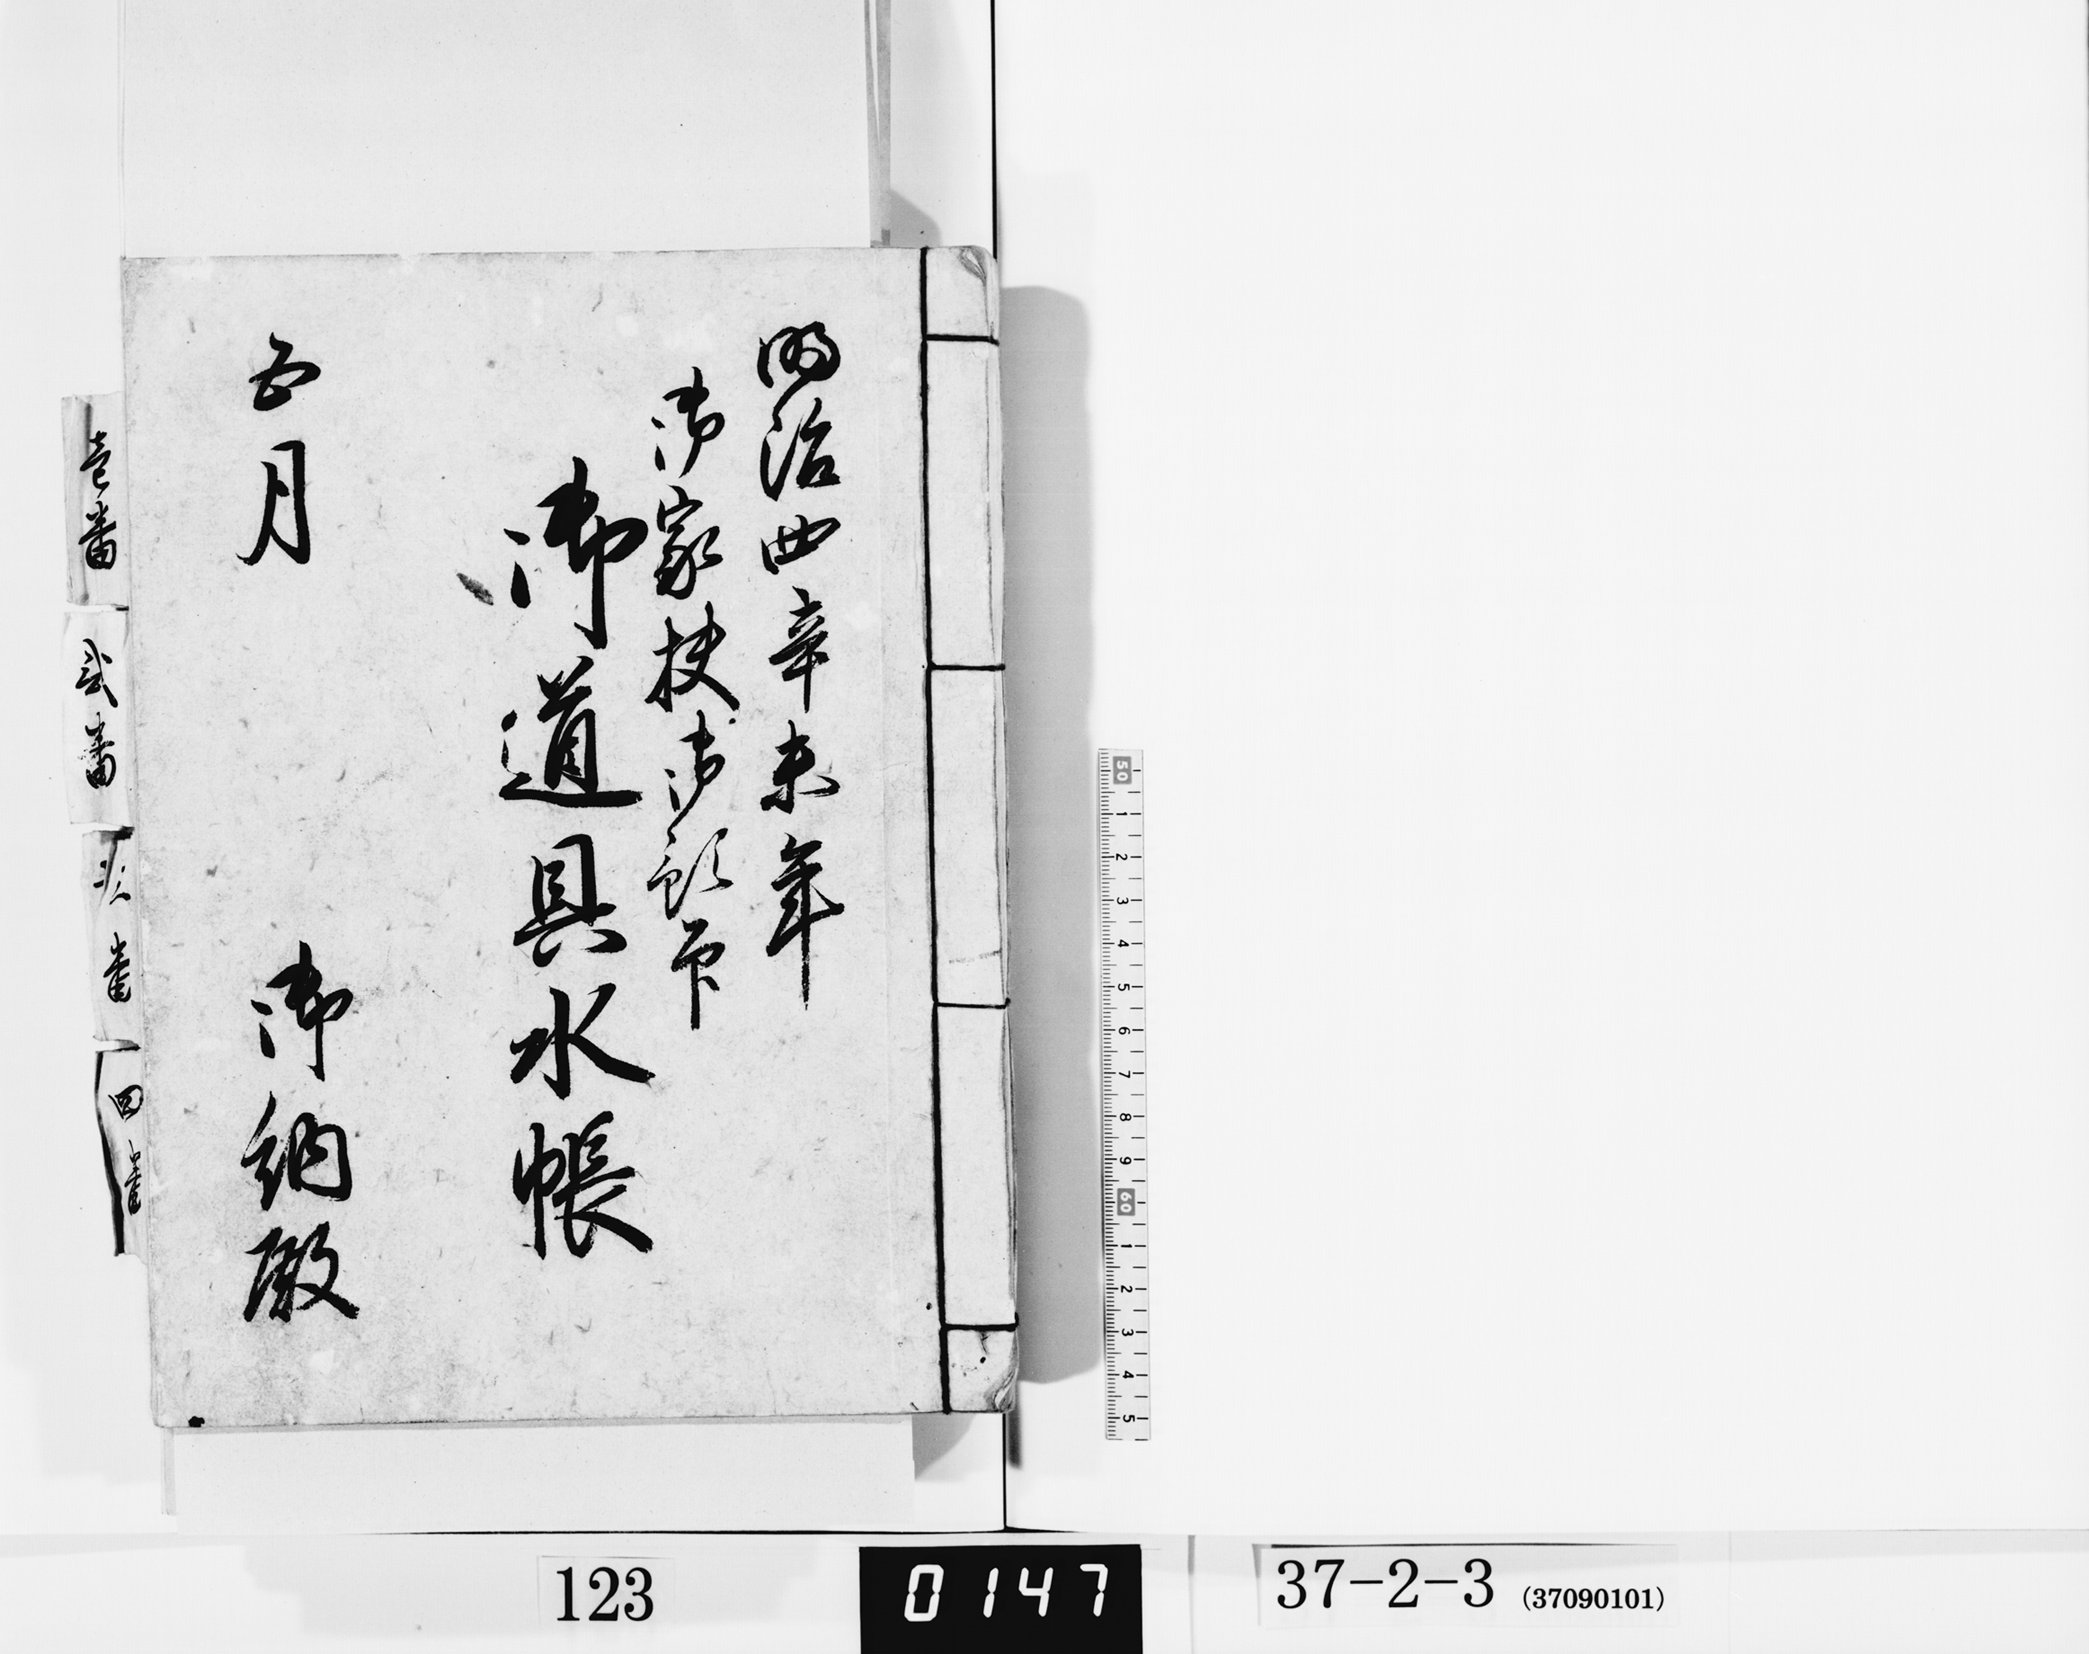 明治四辛未年
御家扶御預
御道具水帳
五月
御納殿
壱番
弐番
番
四番
50 1 2 3 4 5 6 7 8 9 60 1 2 3 4 5
123
0147
37-2-3 (37090101)